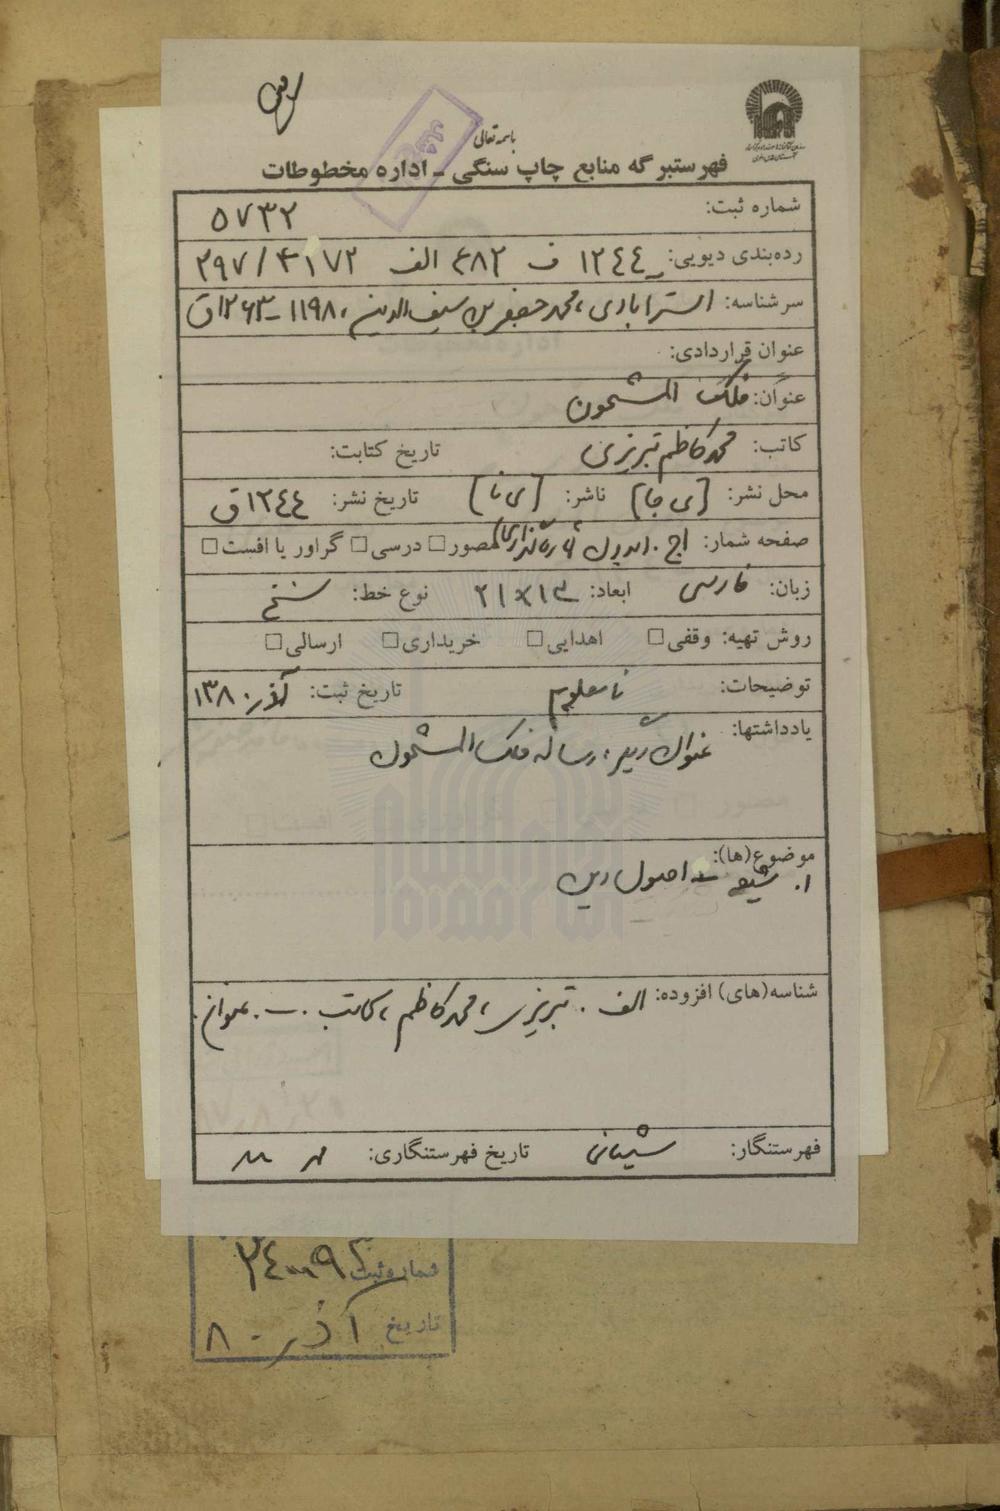 باسمه تعالی
فهرستبرگه منابع چاپ سنگی ـ اداره مخطوطات
شماره ثبت: ۵۷۳۲
رده‌بندی دیویی: ۲۹۷/۴۱۷۲ الف ۴۸۲ ف ۱۲۴۴
سرشناسه: استرآبادی، محمد جعفر بن سیف‌الدین، ۱۱۹۸ـ۱۲۶۳ق
عنوان قراردادی:
عنوان: فلک المشحون
کاتب: محمد کاظم تبریزی تاریخ کتابت:
محل نشر: [بی جا] ناشر: [بی نا] تاریخ نشر: ۱۲۴۴ق
صفحه شمار: ۱ج. مصور□ درسی□ گراور یا افست□
زبان: فارسی ابعاد: ۲۱×۱۳ نوع خط: نسخ
روش تهیه: وقفی□ اهدایی□ خریداری□ ارسالی□
توضیحات: نامعلوم تاریخ ثبت: آذر ۱۳۸۰
یادداشتها: عنوان دیگر: رساله فلک المشحون
موضوع(ها):
۱. شیعه ـ اصول دین
شناسه(های) افزوده: الف. تبریزی، محمد کاظم، کاتب. ب. عنوان.
فهرستنگار: تاریخ فهرستنگاری:
شماره ثبت
تاریخ آذر ۸۰